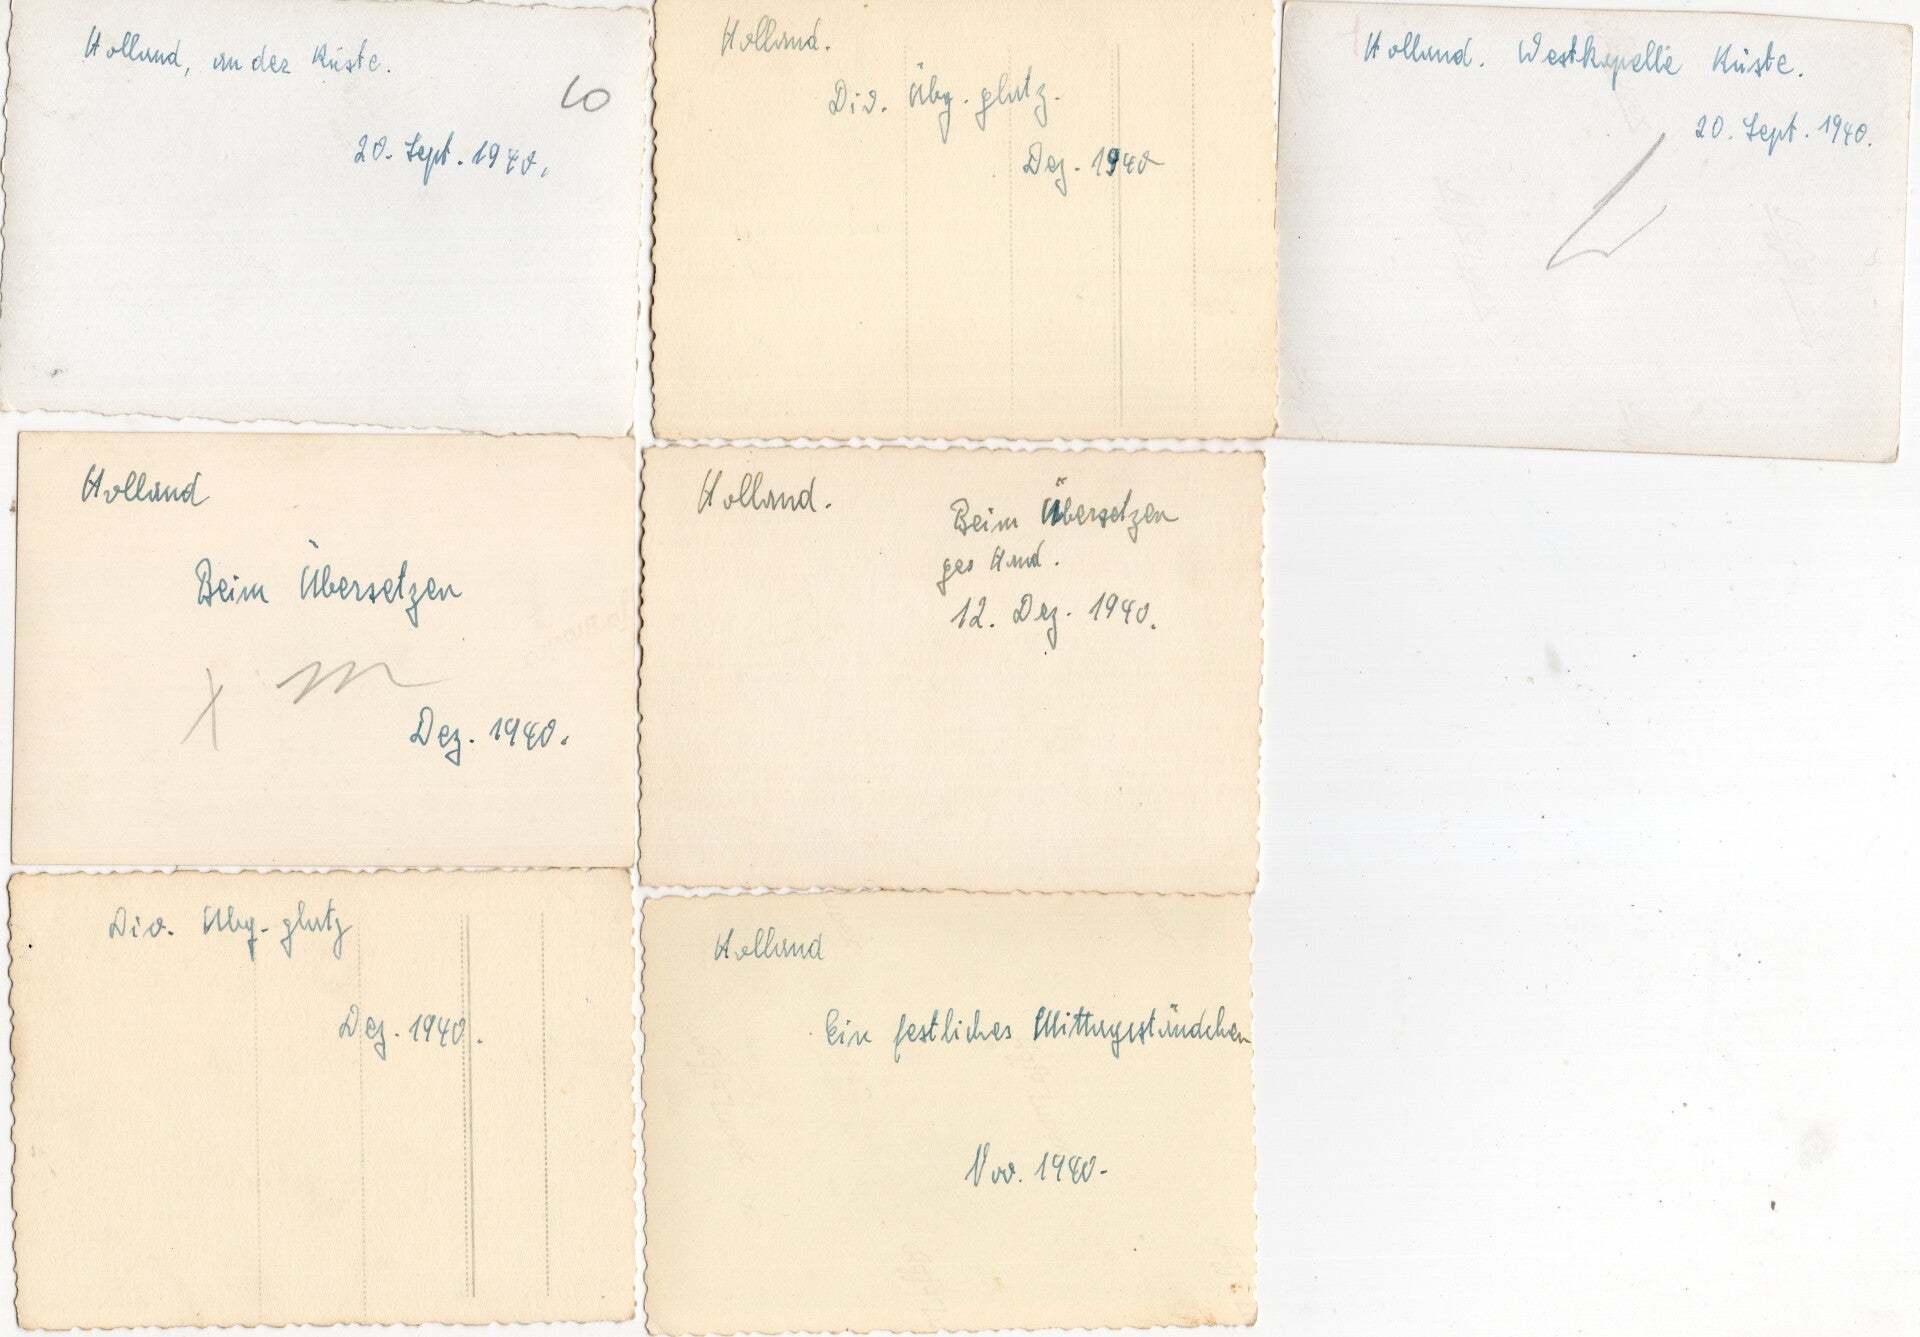 Holland, an der Küste.
20. Sept. 1940.
Holland.
Div. Übg. platz.
Dez. 1940
Holland. Westkapelle Küste.
20. Sept. 1940.
Holland
Beim Übersetzen
X
Dez. 1940.
Holland.
Beim Übersetzen
ges Hund.
12. Dez. 1940.
Div. Übg. platz
Dez. 1940.
Holland
Ein festliches Mittagsständchen
Nov. 1940.